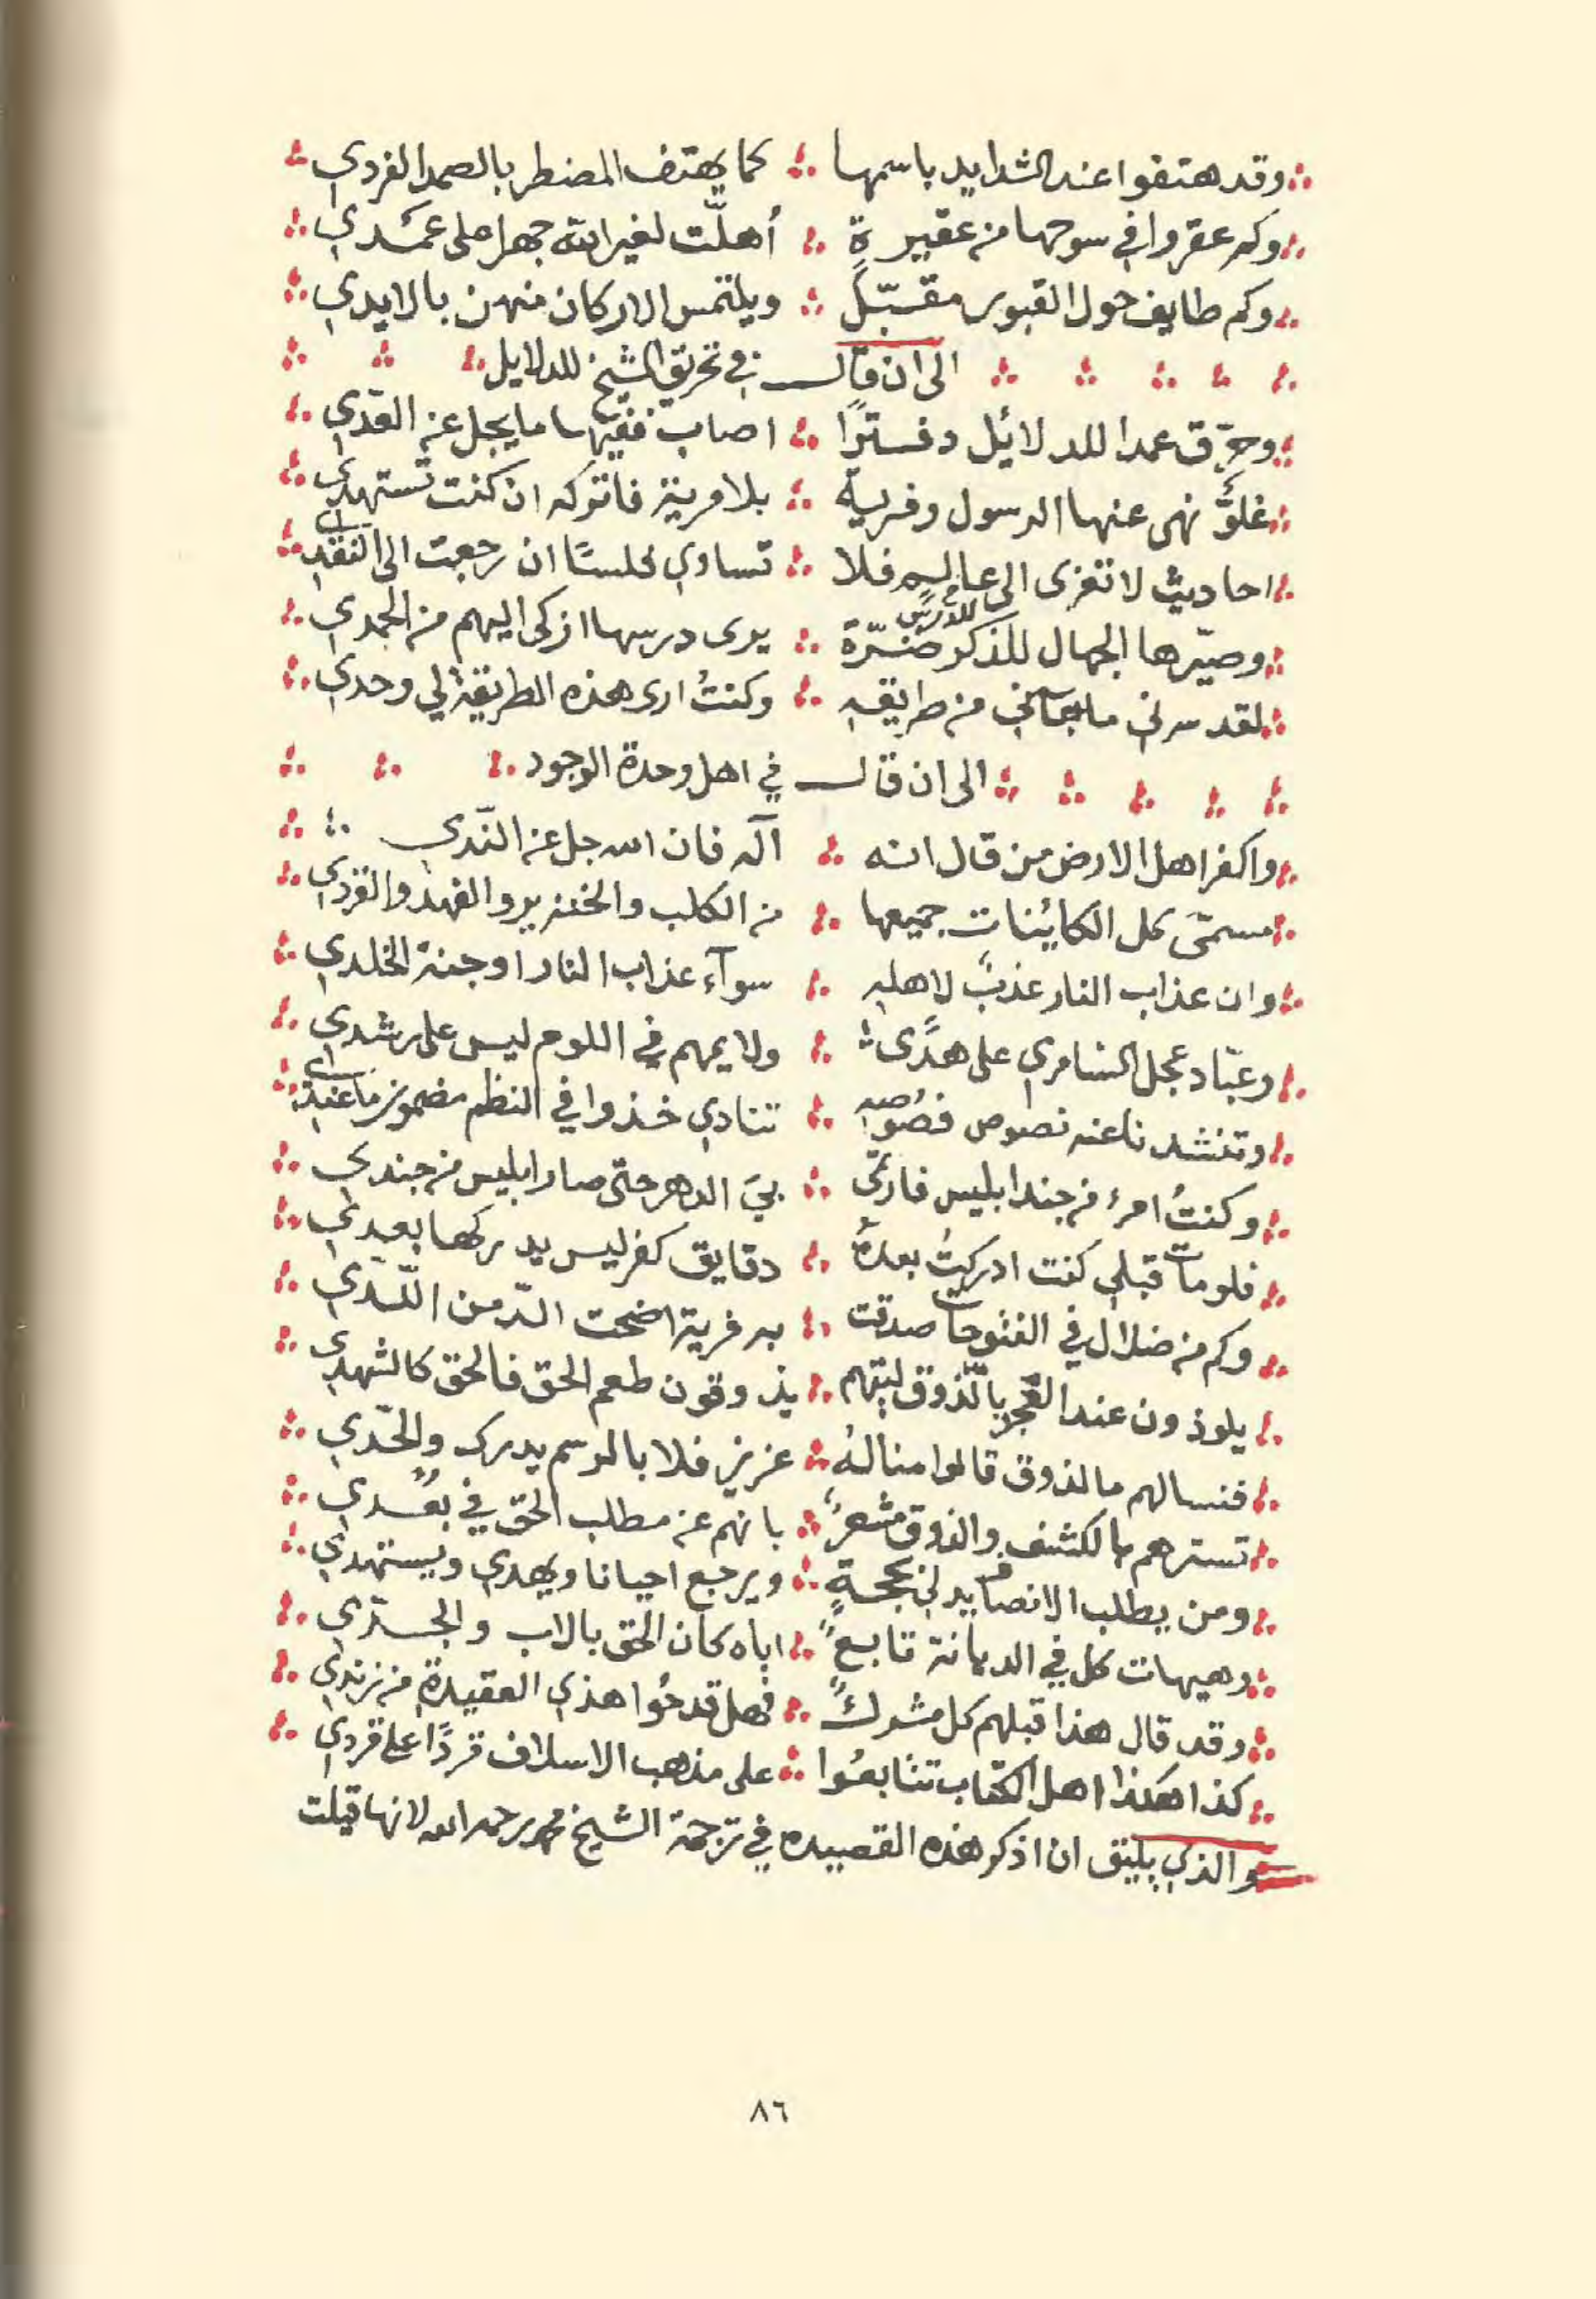 وقد هتفوا عند الشدايد باسمها ∴ كما يهتف المضطر بالصمد الفردي
وكم عقروا في سوحها من عقيرة ∴ أهلّت لغير الله جهرا على عمَدي
وكم طايف حول القبور مقبّلٍ ∴ ويلتمس الاركان منهن بالايدي
الى ان قال في تحريق الشيخ للدلايل
وحرّق عمدا للدلائل دفترًا ∴ اصاب ففيها ما يجل عن العَدّي
غلوٌّ نهى عنها الرسول وفرية ∴ بلا مرية فاتركه ان كنت تستهدي
احاديث لا تعزى الى عالم فلا ∴ تساوي فلسًا ان رجعت الى النقدي
وصيّرها الجهال للذكر ضرّة ∴ يرى درسها ازكى اليهم من الحمدي
للدرس
لقد سرني ما جاني من طريقه ∴ وكنتُ ارى هذه الطريقة لي وحدي
الى ان قال في اهل وحدة الوجود
واكفر اهل الارض من قال انه ∴ آله فان الله جل عن النّدي
مسمّى كل الكائنات جميعها ∴ من الكلب والخنزير والفهد والقردي
وان عذاب النار عذبٌ لاهله ∴ سوآء عذاب النار او جنة الخلدي
وعبّاد عجل السامري على هدًى ∴ ولايمهم في اللوم ليس على رشدي
وتنشدنا عنه نصوص فصُوصه ∴ تنادي خذوا في النظم مضمون ما عندي
وكنتُ امرء من جند ابليس فارتمى ∴ بيَ الدهر حتى صار ابليس من جندي
فلو مات قبلي كنت ادركتُ بعدهُ ∴ دقايق كفر ليس يدركها بعدي
وكم من ضلال في الفتوحات صدقت ∴ به فرية اضحت الدّ من اللّدي
يلوذون عند العجز بالذوق ليتهم ∴ يذوقون طعم الحق فالحق كالشهدي
فنسالهم ما الذوق قالوا منالهُ ∴ عزيز فلا بالرسم يدرك والحّدي
تسترهم بالكشف والذوق مشعرٌ ∴ بانهم عن مطلب الحق في بُعْدي
ومن يطلب الانصاف يدلي بحجةٍ ∴ ويرجع احيانا ويهدي ويستهدي
وهيهات كل في الديانة تابعٌ ∴ اباه كان الحق بالاب والجدّي
وقد قال هذا قبلهم كل مشركٍ ∴ فهل قدحُوا هذي العقيدة من زندي
كذا هكذا اهل الكتاب تتابعُوا ∴ على مذهب الاسلاف فردًا على فردي
والذي يليق ان اذكر هذه القصيده في ترجمة الشيخ محمد رحمه الله لانها قيلت
٨٦